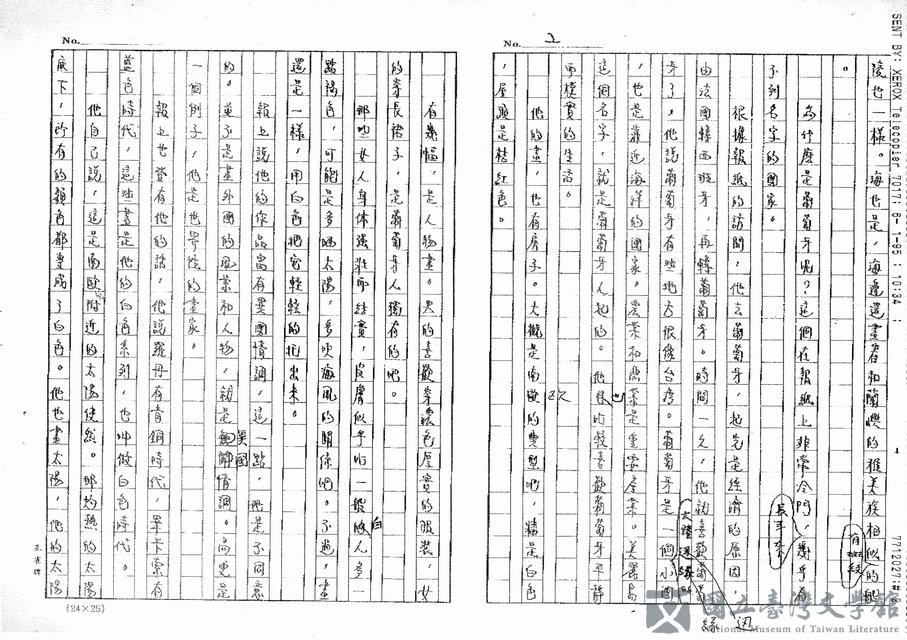 No. 2
陵也一樣。海也是，海邊還畫着和蘭嶼的雅美族相似的船
有斑紋
。
為什麼是葡萄牙呢？這個在報紙上非常冷門，幾乎有
長年來
不列名字的國家。
根據報紙的訪問，他去葡萄牙，起先是經濟的原因
由法國轉西班牙，再轉葡萄牙。時間一久，他就喜歡葡萄
牙了。他說葡萄牙有些地方很像台灣。葡萄牙是一個小國
大陸邊緣的
，也是靠近海洋的國家。農業和漁業是重要產業。美麗島
這個名字，就是葡萄牙人起的。他也比較喜歡葡萄牙平靜
而樸實的生活。
他的畫，也有房子。大概是南歐的典型吧，牆是白色
，屋頂是桔紅色。
No.
有幾幅，是人物畫。男的喜歡穿深色厚實的服裝，女
的穿長裙子，是葡萄牙人獨有的吧。
那些女人身體強壯而結實，皮膚似乎比一般白人多一
點褐色，可能是多晒太陽，多吹海風的關係吧。不過，畫
還是一樣，用白色把它輕輕的托出來。
報上說他的作品富有異國情調，這一點，他是不同意
的。並不是畫外國的風景和人物，就是異國情調。高更是
一個例子，他是也是個性的畫家。
報上也登有他的話，他說羅丹有青銅時代，畢卡索有
藍色時代，這些畫是他的白色系列，也叫做白色時代。
他自己說，這是南歐附近的太陽使然。那灼熱的太陽
底下，所有的顏色都變成了白色。他也畫太陽，他的太陽
(24×25)
孔雀牌
SENT BY: XEROX Telecopier 7017; 6- 1-95 ; 10:34 ;
國立臺灣文學館
National Museum of Taiwan Literature